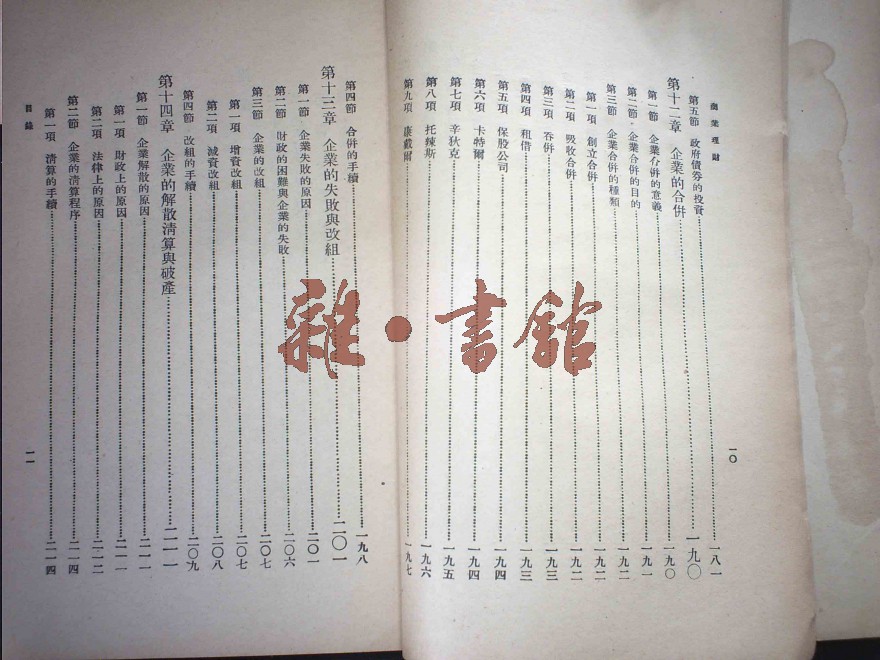 商業理財
第五節 政府債券的投資 一八一
第十二章 企業的合併 一九〇
第一節 企業合併的意義 一九〇
第二節 企業合併的目的 一九一
第三節 企業合併的種類 一九二
第一項 創立合併 一九二
第二項 吸收合併 一九二
第三項 吞併 一九三
第四項 租借 一九三
第五項 保股公司 一九四
第六項 卡特爾 一九四
第七項 辛狄克 一九五
第八項 托辣斯 一九六
第九項 康戴爾 一九七
一〇
第四節 合併的手續 一九八
第十三章 企業的失敗與改組 二〇一
第一節 企業失敗的原因 二〇一
第二節 財政的困難與企業的失敗 二〇六
第三節 企業的改組 二〇七
第一項 增資改組 二〇七
第二項 減資改組 二〇八
第四節 改組的手續 二〇九
第十四章 企業的解散清算與破產 二一一
第一節 企業解散的原因 二一一
第一項 財政上的原因 二一一
第二項 法律上的原因 二一二
第二節 企業的清算程序 二一四
第一項 清算的手續 二一四
目錄
一一
雜·書館